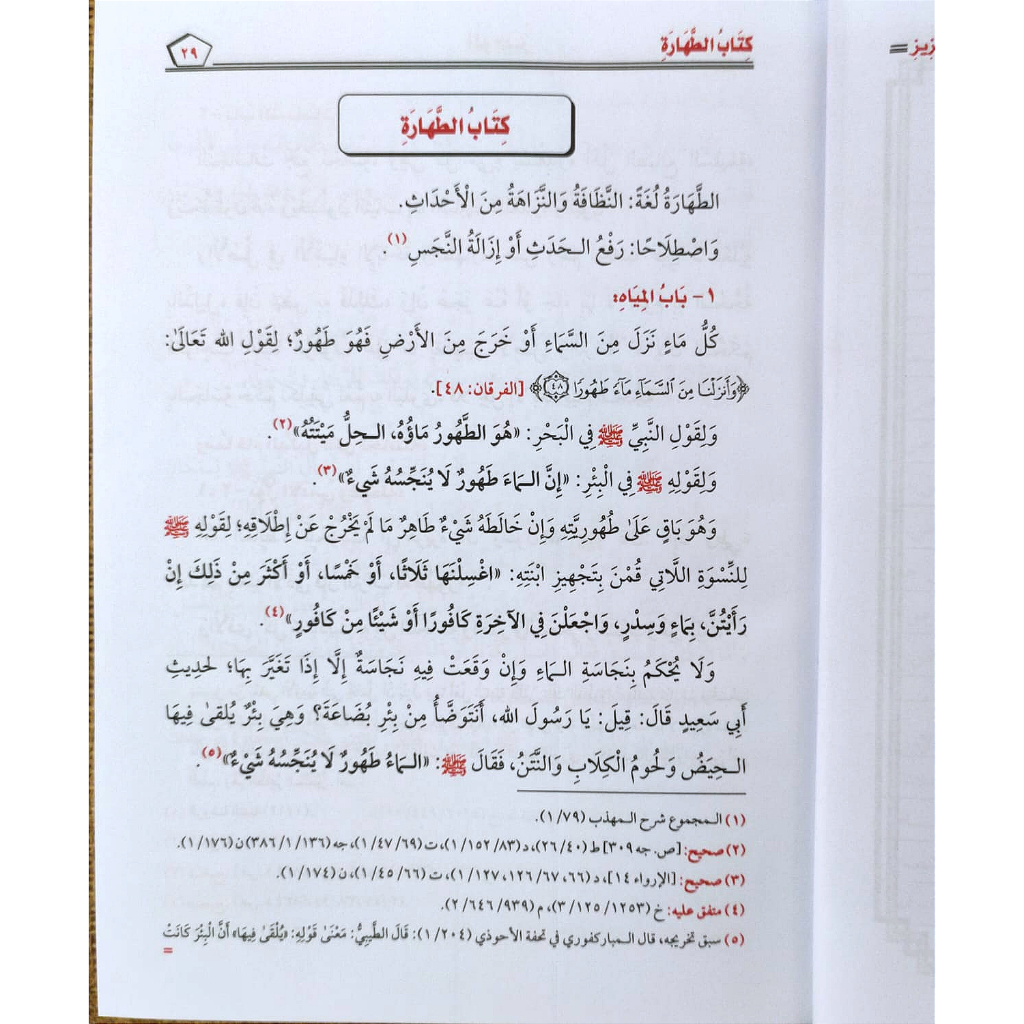 كِتَابُ الطَّهَارَةِ
٢٩
كِتَابُ الطَّهَارَةِ
الطَّهَارَةُ لُغَةً: النَّظَافَةُ وَالنَّزَاهَةُ مِنَ الْأَحْدَاثِ.
وَاصْطِلَاحًا: رَفْعُ الـحَدَثِ أَوْ إِزَالَةُ النَّجَسِ (١).
١- بَابُ المِيَاهِ:
كُلُّ مَاءٍ نَزَلَ مِنَ السَّمَاءِ أَوْ خَرَجَ مِنَ الأَرْضِ فَهُوَ طَهُورٌ؛ لِقَوْلِ الله تَعَالَىٰ:
﴿وَأَنزَلْنَا مِنَ السَّمَاءِ مَاءً طَهُورًا ٤٨﴾ [الفرقان: ٤٨].
وَلِقَوْلِ النَّبِيِّ ﷺ فِي الْبَحْرِ: «هُوَ الطَّهُورُ مَاؤُهُ، الـحِلُّ مَيْتَتُهُ» (٢).
وَلِقَوْلِهِ ﷺ فِي الْبِئْرِ: «إِنَّ الـمَاءَ طَهُورٌ لَا يُنَجِّسُهُ شَيْءٌ» (٣).
وَهُوَ بَاقٍ عَلَىٰ طُهُورِيَّتِهِ وَإِنْ خَالَطَهُ شَيْءٌ طَاهِرٌ مَا لَمْ يَخْرُجْ عَنْ إِطْلَاقِهِ؛ لِقَوْلِهِ ﷺ
لِلنِّسْوَةِ اللَّاتِي قُمْنَ بِتَجْهِيزِ ابْنَتِهِ: «اغْسِلْنَهَا ثَلَاثًا، أَوْ خَمْسًا، أَوْ أَكْثَرَ مِنْ ذَلِكَ إِنْ
رَأَيْتُنَّ، بِمَاءٍ وَسِدْرٍ، وَاجْعَلْنَ فِي الآخِرَةِ كَافُورًا أَوْ شَيْئًا مِنْ كَافُورٍ» (٤).
وَلَا يُحْكَمُ بِنَجَاسَةِ الـمَاءِ وَإِنْ وَقَعَتْ فِيهِ نَجَاسَةٌ إِلَّا إِذَا تَغَيَّرَ بِهَا؛ لحَدِيثِ
أَبِي سَعِيدٍ قَالَ: قِيلَ: يَا رَسُولَ الله، أَنَتَوَضَّأُ مِنْ بِئْرِ بُضَاعَةَ؟ وَهِيَ بِئْرٌ يُلقىٰ فِيهَا
الـحِيَضُ وَلُحومُ الْكِلَابِ وَالنَّتَنُ، فَقَالَ ﷺ: «الـمَاءُ طَهُورٌ لَا يُنَجِّسُهُ شَيْءٌ» (٥).
(١) الـمجموع شرح المهذب (٧٩/ ١).
(٢) صحيح: [ص. جه ٣٠٩] ط (٤٠/ ٢٦)، د (٨٣/ ١٥٢/ ١)، ت (٦٩/ ٤٧/ ١)، جه (١٣٦/ ١/ ٣٨٦) ن (١٧٦/ ١).
(٣) صحيح: [الإرواء ١٤]، د (٦٦، ٦٧/ ١٢٦، ١٢٧/ ١)، ت (٦٦/ ٤٥/ ١)، ن (١٧٤/ ١).
(٤) متفق عليه: خ (١٢٥٣/ ١٢٥/ ٣)، م (٩٣٩/ ٦٤٦/ ٢).
(٥) سبق تخريجه، قال الـمباركفوري في تحفة الأحوذي (٢٠٤/ ١): قَالَ الطِّيبِيُّ: مَعْنَىٰ قَوْلِهِ: «يُلْقَىٰ فِيهَا» أَنَّ الْبِئْرَ كَانَتْ
=